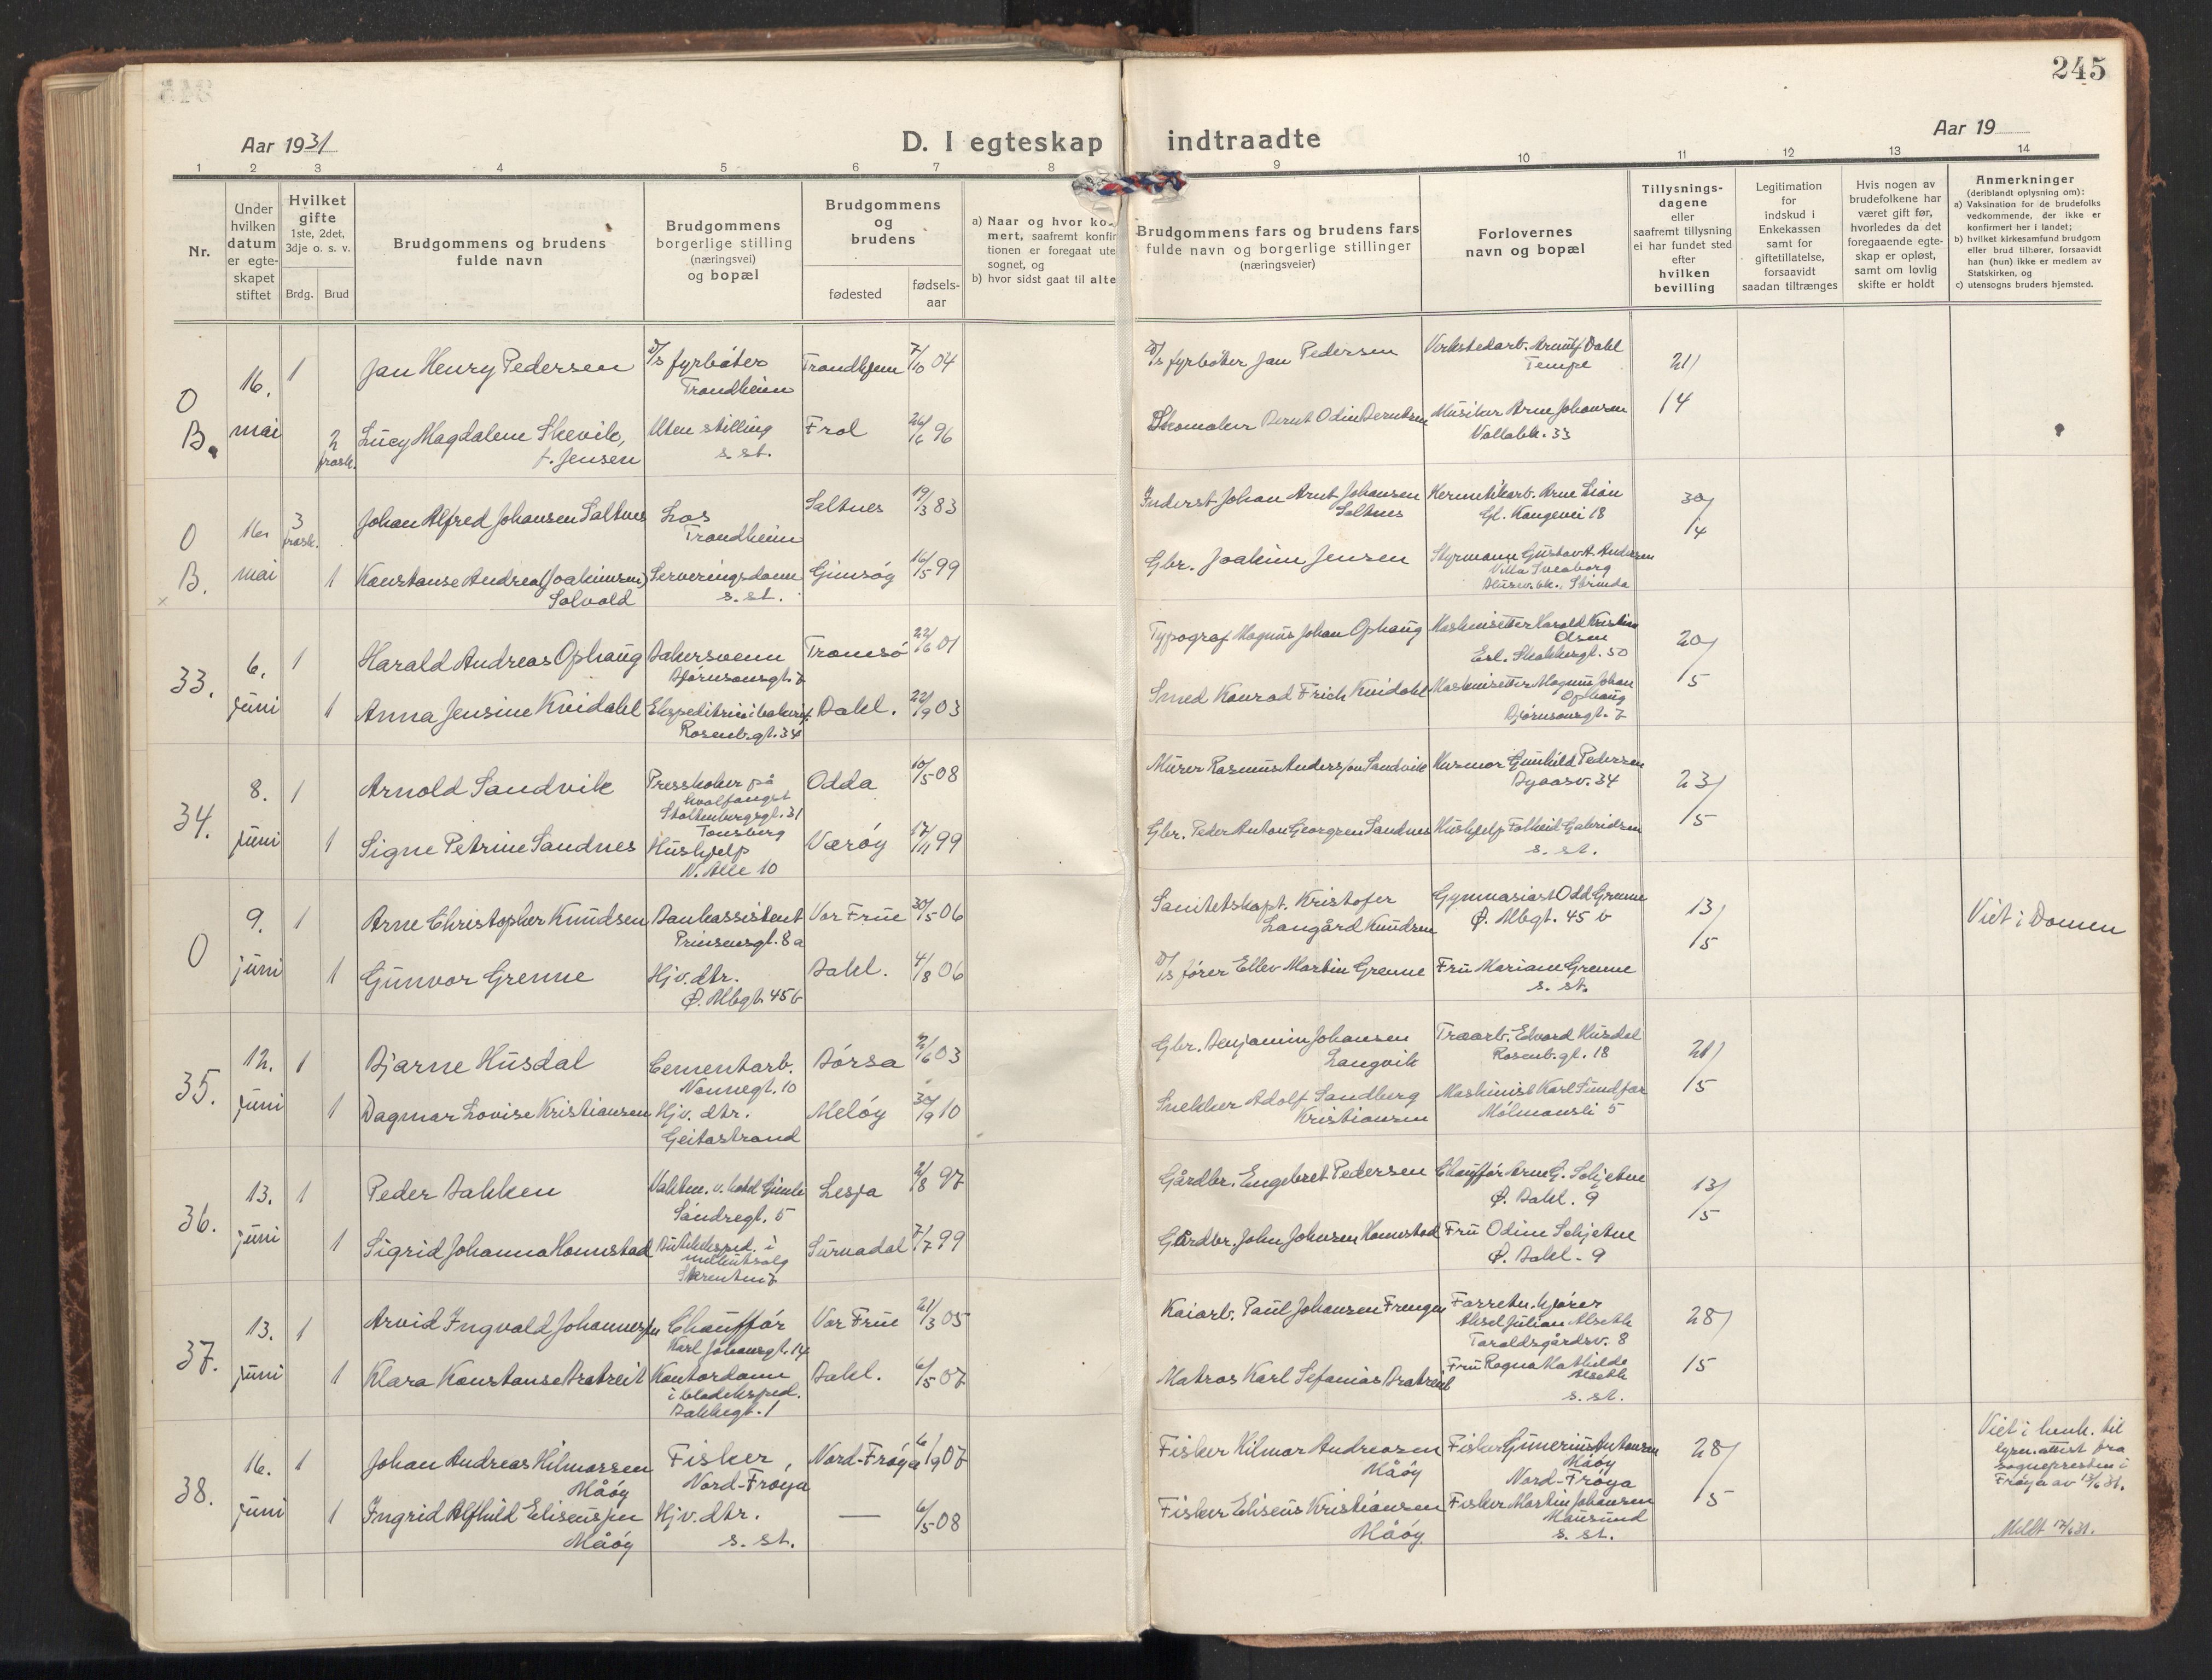 245
Aar 1931
D. I egteskap indtraadte
Aar 19
1 2 3 4 5 6 7 8 9 10 11 12 13 14
Nr.
Under hvilken datum er egteskapet stiftet
Hvilket gifte 1ste, 2det, 3dje o. s. v.
Brdg. Brud
Brudgommens og brudens fulde navn
Brudgommens borgerlige stilling (næringsvei) og bopæl
Brudgommens og brudens
fødested
fødsels-aar
a) Naar og hvor ko-
mert, saafremt konfir
tionen er foregaat ute
sognet, og
b) hvor sidst gaat til alte
Brudgommens fars og brudens fars
fulde navn og borgerlige stillinger
(næringsveier)
Forlovernes
navn og bopæl
Tillysnings-
dagene
eller
saafremt tillysning
ei har fundet sted
efter
hvilken
bevilling
Legitimation
for
indskud i
Enkekassen
samt for
giftetillatelse,
forsaavidt
saadan tiltrænges
Hvis nogen av
brudefolkene har
været gift før,
hvorledes da det
foregaaende egte-
skap er opløst,
samt om lovlig
skifte er holdt
Anmerkninger
(deriblandt oplysning om):
a) Vaksination for de brudefolks
vedkommende, der ikke er
konfirmert her i landet;
b) hvilket kirkesamfund brudgom
eller brud tilhører, forsaavidt
han (hun) ikke er medlem av
Statskirken, og
c) utensogns bruders hjemsted.
O 16. 1 Jan Henry Pedersen D/s fyrbøter Trondhjem 7/10 04 D/s fyrbøter Jan Pedersen Verkstedarb. Arnulf Dahl 21/
Trondheim Tempe
B. mai 2 Lucy Magdalene Skevik, Uten stilling Frol 26/6 96 Skomaker Bernt Odin Berntsen Musiker Arne Johansen 14
frask. f. Jensen s. st. Vollabk. 33
O 16. 3 Johan Alfred Johansen Saltnes Los Saltnes 19/3 83 Inderst Johan Arnt Johansen Hermetikarb. Arne Lian 30/
frask. Trondheim Saltnes Gl. Kongevei 18 /4
B. mai 1 Konstanse Andrea (Joakimsen) Serveringsdame Gimsøy 16/5 99 Gbr. Joakim Jensen Styrmann Gustav A. Andersen
Solvold s. st. Villa Sveaborg
Strinda
33. 6. 1 Harald Andreas Ophaug Bakersvenn Tromsø 22/6 01 Typograf Magnus Johan Ophaug Maskinsetter Harald Kristian 20/
Bjørnsonsgt. 7 Olsen
Erl. Skakkesgt. 50
juni 1 Anna Jensine Kvidahl Ekspeditrise i bakeri Bakl. 22/9 03 Smed Konrad Frich Kvidahl Maskinsetter Magnus Johan 5
Rosenb.gt. 34 Ophaug
Bjørnsonsgt. 7
34. 8. 1 Arnold Sandvik Presskoker på Odda 10/5 08 Murer Rasmus Anderssen Sandvik Husmor Gunhild Pedersen 23/
hvalfangst Byaasv. 34
Stoltenbergsgt. 31
Tønsberg
juni 1 Signe Petrine Sandnes Hushjelp Værøy 17/11 99 Gbr. Peder Anton Georgsen Sandnes Hushjelp Gabrielsen 5
N. Alle 10 s. st.
O 9. 1 Arne Christopher Knudsen Bankassistent Vor Frue 30/5 06 Sanitetskapt. Kristofer Gymnasiast Odd Grenne 13/ Viet i Domen
Prinsensgt. 8a Langård Knudsen Ø. Mbgt. 45 b /5
juni 1 Gunvor Grenne Hjv. dtr. Bakl. 4/8 06 D/s fører Ellev Martin Grenne Fru Mariane Grenne
Ø. Mbgt. 45 b s. st.
35. 12. 1 Bjarne Husdal Cementarb. Børsa 2/6 03 Gbr. Benjamin Johansen Træarb. Edvard Husdal 21/
Nonnegt. 10 Langvik Rosenb.gt. 18
juni 1 Dagmar Lovise Kristiansen Hjv. dtr. Meløy 30/9 10 Snekker Adolf Sandberg Maskinist Karl Sundfær 5
Geitastrand Kristiansen Møllmansli 5
36. 13. 1 Peder Bakken Vaktm. v. hotel Gimle Lesja 2/8 97 Gårdbr. Engebret Pedersen Chauffør Arne G. Schjetne 13/
Søndregt. 5 Ø. Bakl. 9 /5
juni 1 Sigrid Johanna Honnstad Butikkeksped. i Surnadal 7/7 99 Gårdbr. John Johnsen Honnstad Fru Odine Schjetne
melkutsalg Ø. Bakl. 9
37. 13. 1 Arvid Ingvald Johannessen Chauffør Vor Frue 21/3 05 Kaiarb. Paul Johansen Frengen Forretn. kjører 28/
Karl Johansgt. 14 Aksel Julian Alseth
Taraldsgårdsv. 8
juni 1 Klara Konstanse Bratreit Kontordame Bakl. 6/5 07 Matros Karl Sefanias Bratreit Fru Ragna Mathilde 15
i bladeksped. Alseth
Bakkegt. 1 s. st.
38. 16. 1 Johan Andreas Hilmarsen Fisker Nord-Frøya 6/9 07 Fisker Hilmar Andreasen Fisker Gunerius Antonsen 28/ Viet i henh. til
Måøy Nord-Frøya Måøy Måøy lysn. attest fra
Nord-Frøya sognepresten i
Frøya av 13/6 31.
juni 1 Ingrid Alfhild Eliseussen Hjv. dtr. — 6/5 08 Fisker Eliseus Kristiansen Fisker Martin Johansen 5
Måøy s. st. Måøy Mausund
s. st. Meldt 17/6 31.